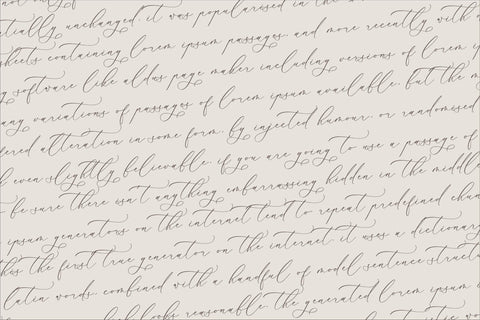 not only
tially unchanged. it was popularised in the
sheets containing lorem ipsum passages, and more recently with
g software like aldus page maker including versions of lorem
any variations of passages of lorem ipsum available, but the m
fered alteration in some form, by injected humour, or randomised
k even slightly believable. if you are going to use a passage of
be sure there isn't anything embarrassing hidden in the middle
ipsum generators on the internet tend to repeat predefined chun
this the first true generator on the internet. it uses a dictionary
latin words, combined with a handful of model sentence structu
looks reasonable. the generated lorem ipsum